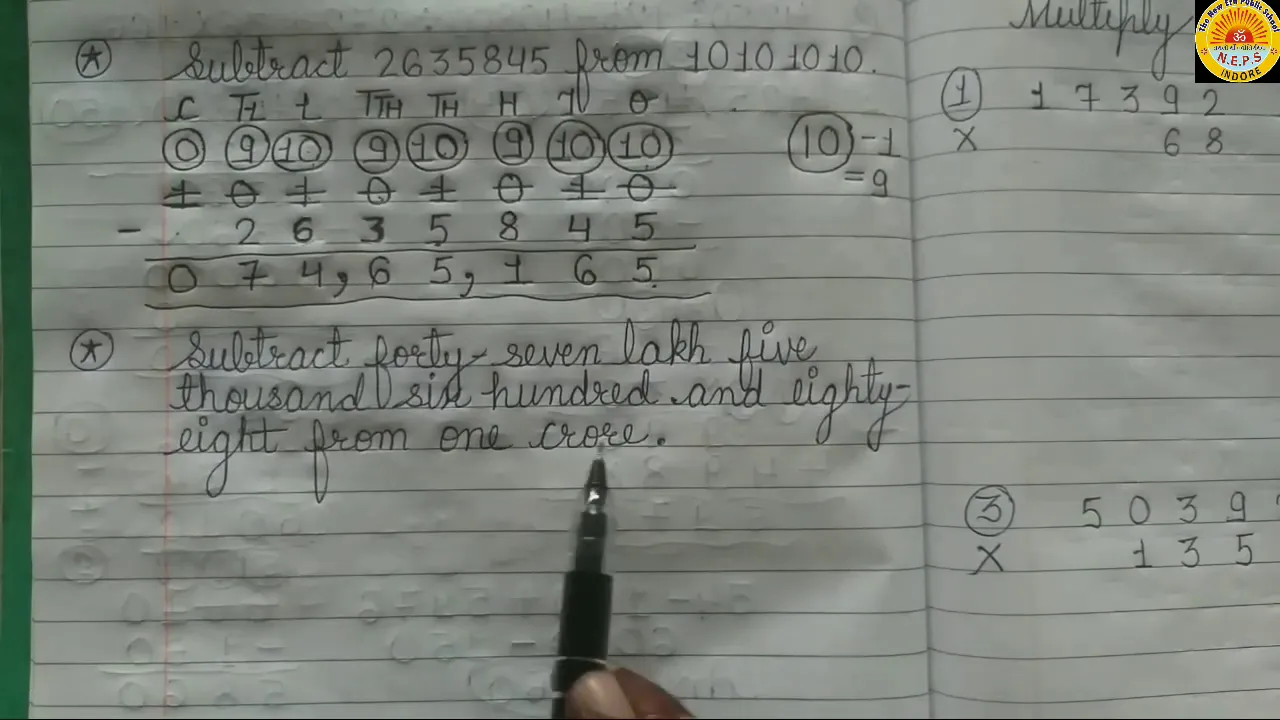 Subtract 2635845 from 10101010.
C TL L TTH TH H T O
0 9 10 9 10 9 10 10
1 0 1 0 1 0 1 0
- 2 6 3 5 8 4 5
0 7 4, 6 5, 1 6 5
10 - 1
= 9
Subtract forty-seven lakh five
thousand six hundred and eighty-
eight from one crore.
Multiply
1 1 7 3 9 2
X 6 8
3 5 0 3 9
X 1 3 5
The New Era Public School
ॐ
N.E.P.S
INDORE